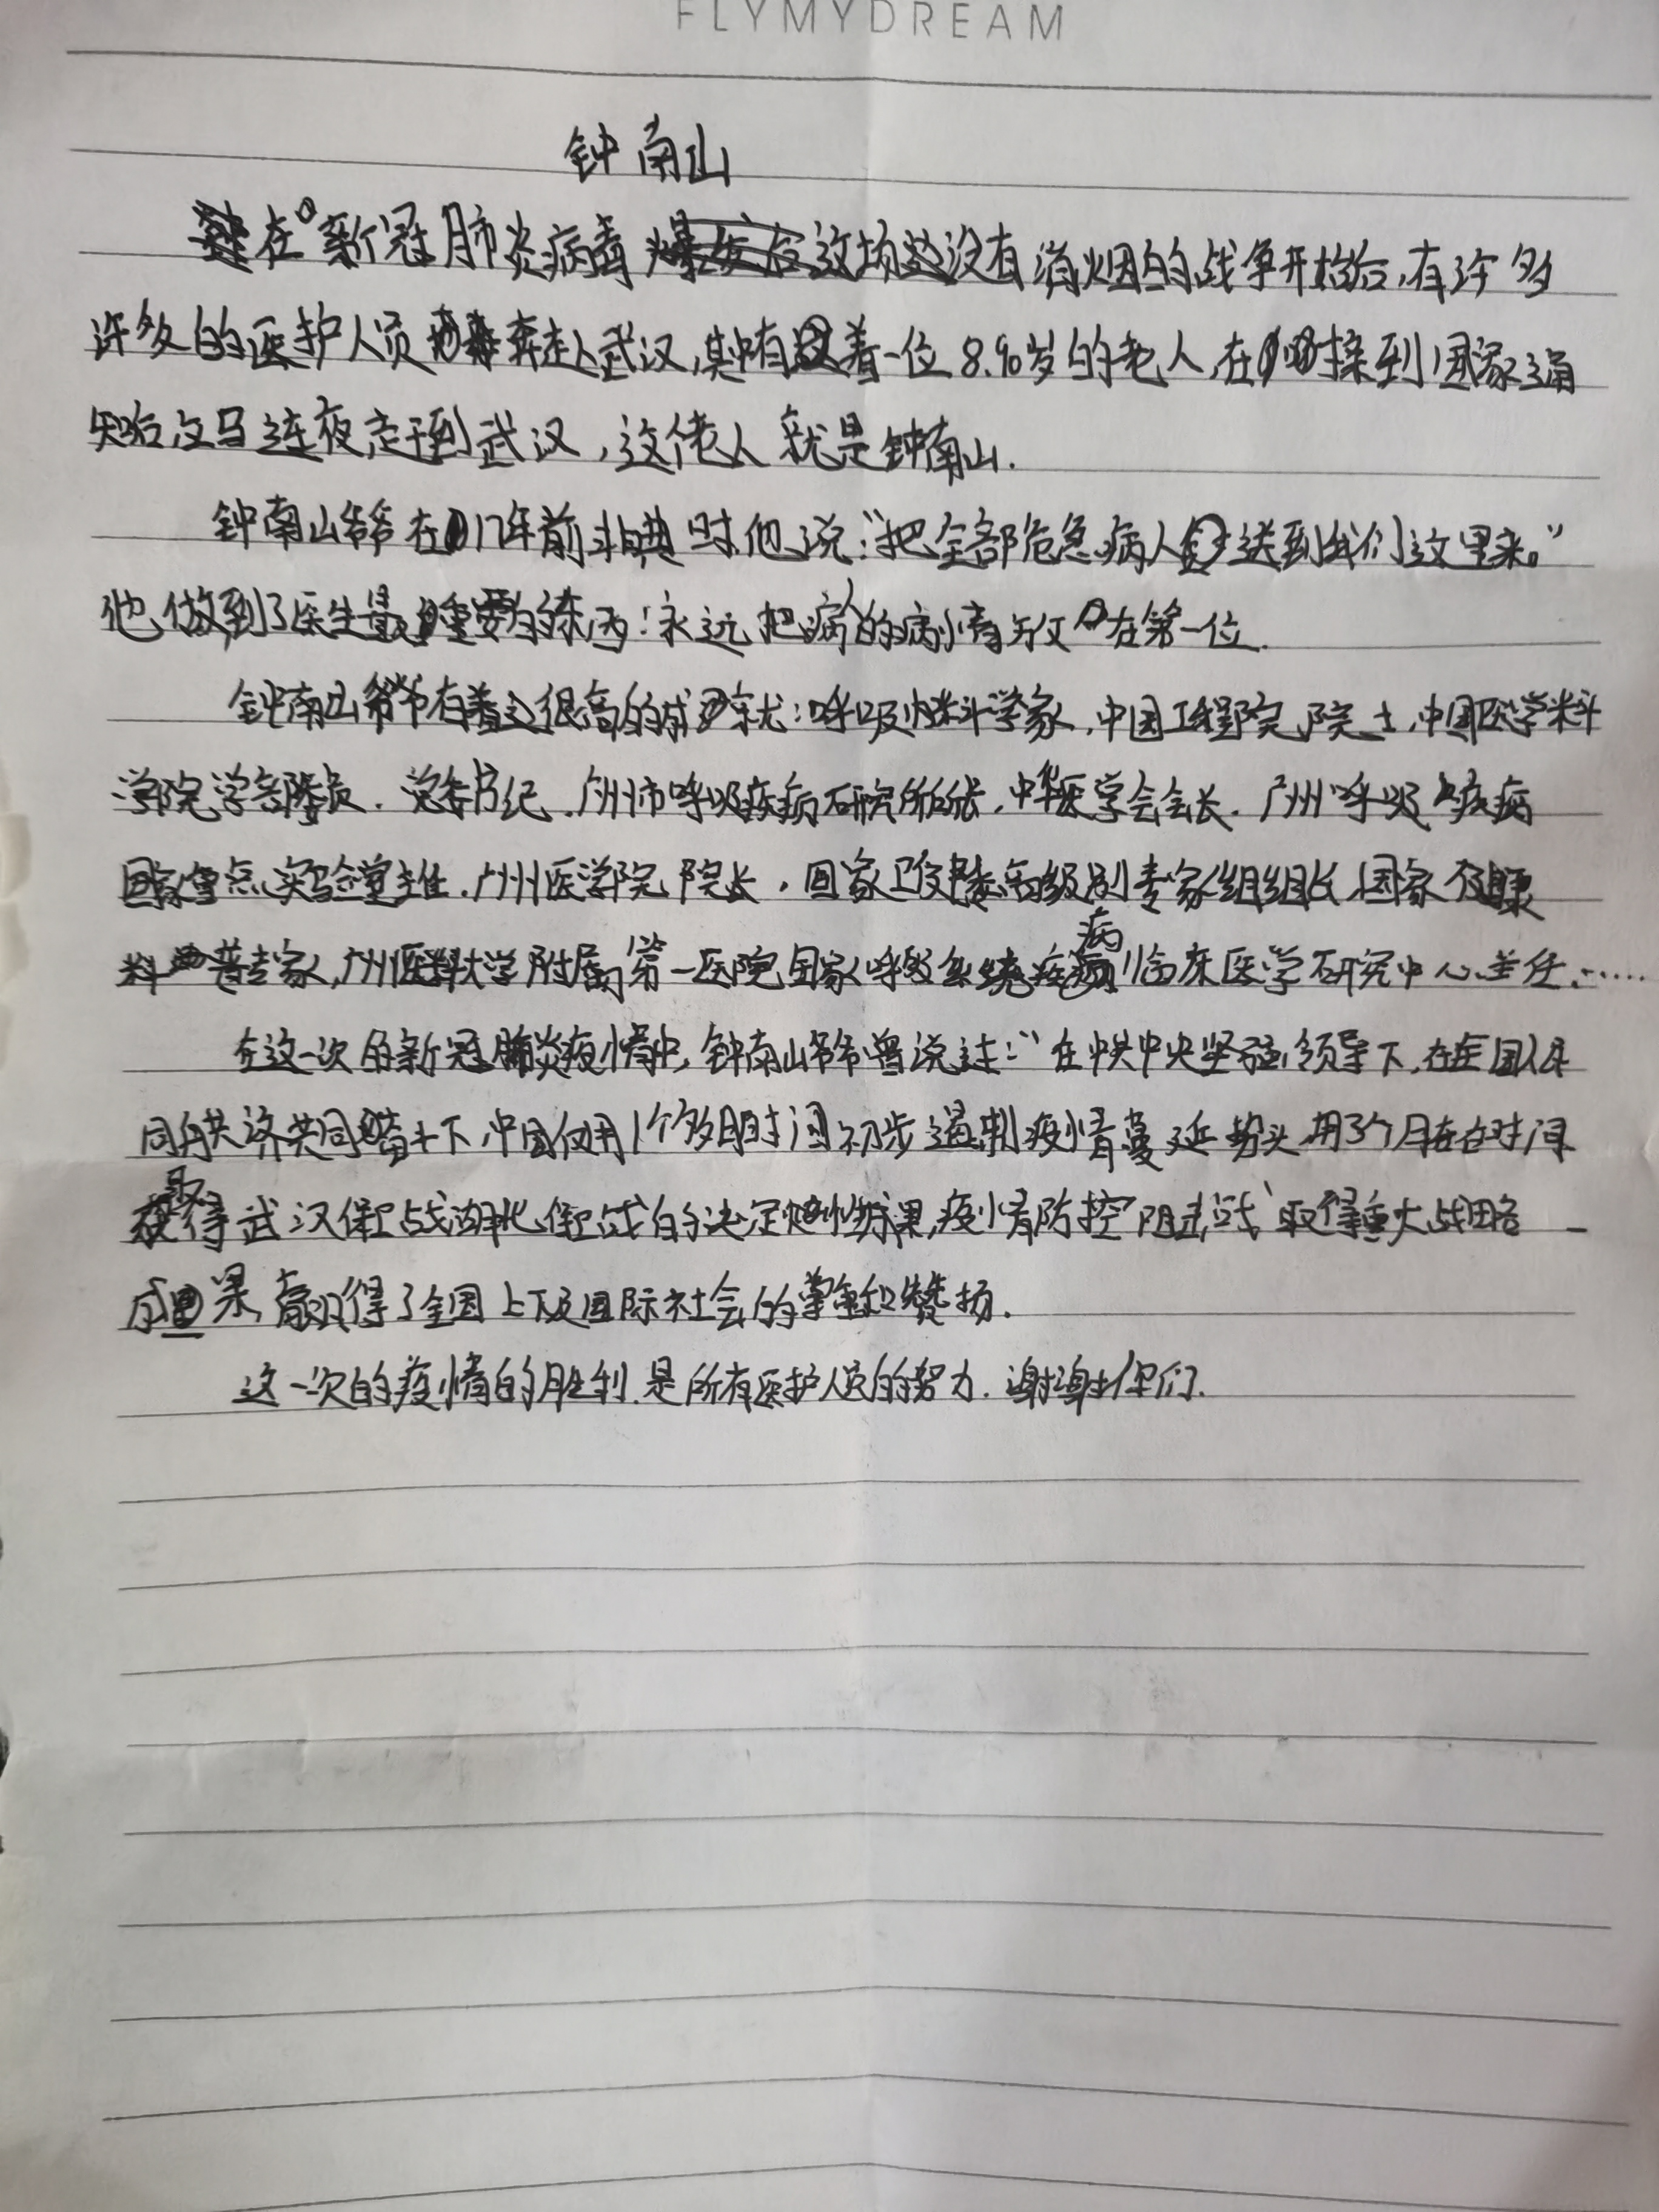 FLYMYDREAM
钟南山
在新冠肺炎病毒这场没有消烟的战争开始后,有许多
许多的医护人员奔赴武汉,其中有着一位8.90岁的老人,在接到国家通
知后立马连夜赶到武汉,这位老人就是钟南山.
钟南山爷爷在17年前非典时他说:“把全部危急病人送到我们这里来。”
他做到了医生最重要的东西!永远把病人的病情放在第一位.
钟南山爷爷有着很高的成就:呼吸内科学家,中国工程院院士,中国医学科
学院学部委员.党委书记.广州市呼吸疾病研究所所长,中华医学会会长.广州呼吸疾病
国家重点实验室主任.广州医学院院长,国家卫健委高级别专家组组长,国家健康
科普专家,广州医科大学附属第一医院国家呼吸系统疾病临床医学研究中心主任......
在这一次的新冠肺炎疫情中,钟南山爷爷曾说过:“在中共中央坚强领导下,在全国人民
同舟共济共同奋斗下,中国仅用1个多月时间初步遏制疫情蔓延势头,用3个月左右时间
取得武汉保卫战湖北保卫战的决定性成果,疫情防控阻击战取得重大战略
成果,赢得了全国上下及国际社会的赞扬.
这一次的疫情的胜利.是所有医护人员的努力.谢谢你们.